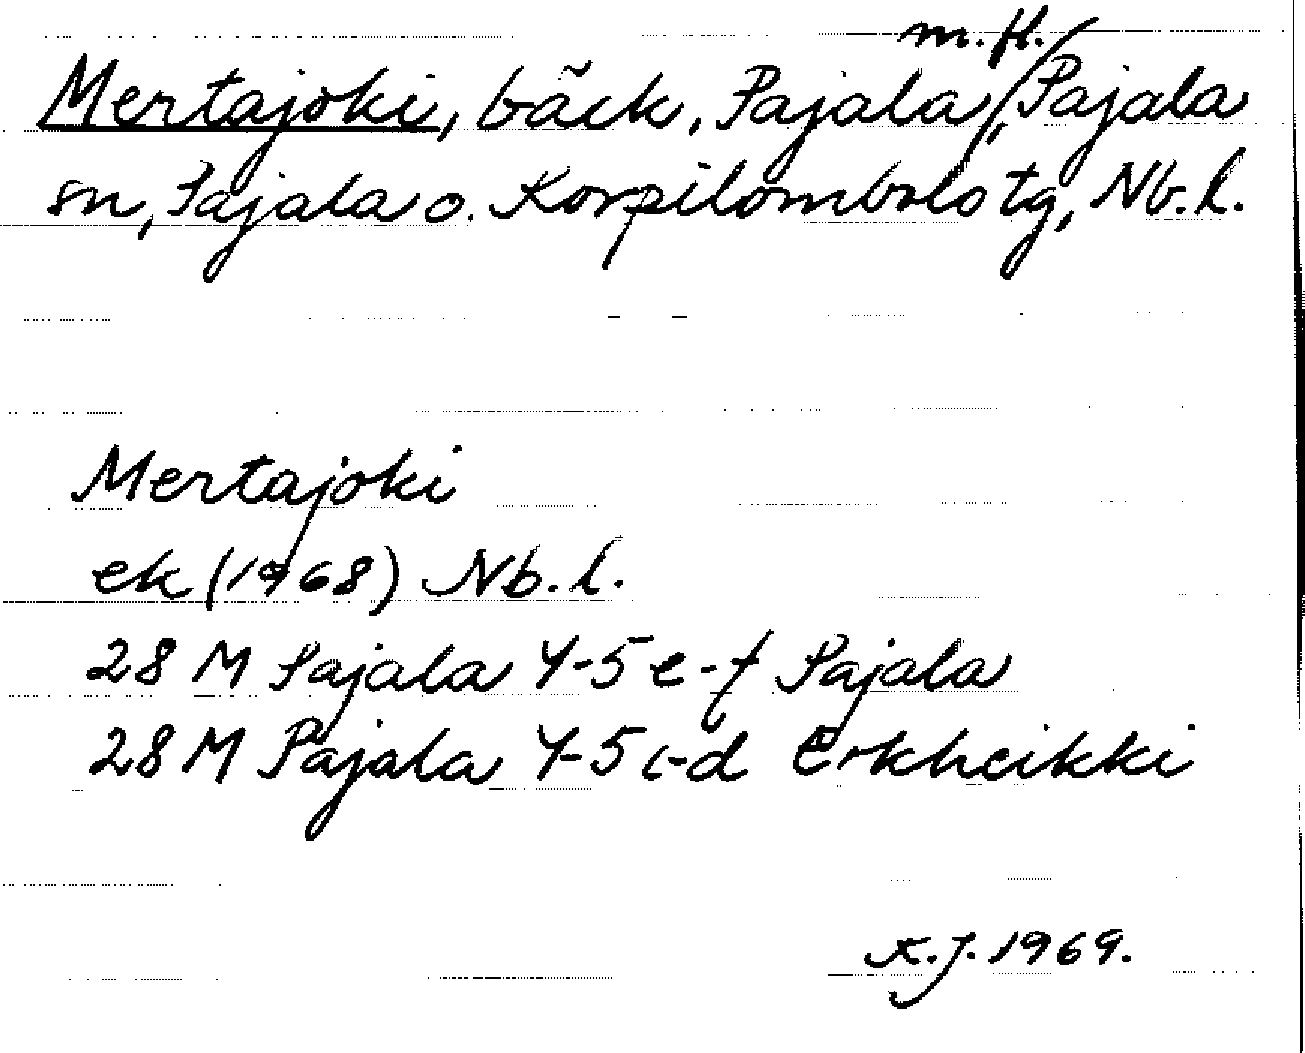 Mertajoki, bäck, Pajala m.fl., Pajala
sn, Pajala o. Korpilombolo tg, Nb. l.
Mertajoki
ek (1968) Nb. l.
28 M Pajala 4-5 e-f Pajala
28 M Pajala 4-5 c-d Erkheikki
K.J. 1969.